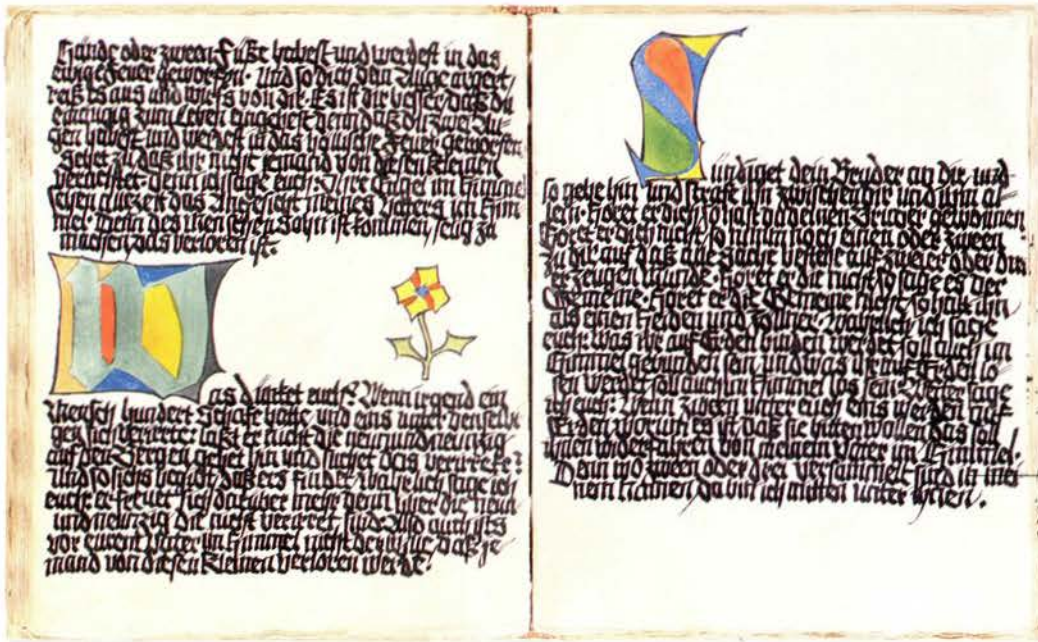 Hände oder zween Füße habest und werdest in das
ewige Feuer geworfen. Und so dich dein Auge ärgert,
reiß es aus und wirfs von dir. Es ist dir besser, daß du
einäugig zum Leben eingehest, denn daß du zwei Au-
gen habest und werdest in das höllische Feuer geworfen.
Sehet zu, daß ihr nicht jemand von diesen Kleinen
verachtet. Denn ich sage euch: Ihre Engel im Himmel
sehen allezeit das Angesicht meines Vaters im Him-
mel. Denn des Menschen Sohn ist kommen, selig zu
machen, das verloren ist.
Was dünket euch? Wenn irgend ein
Mensch hundert Schafe hätte und eins unter denselbi-
gen sich verirrete: läßt er nicht die neunundneunzig
auf den Bergen, gehet hin und suchet das verirrete?
Und so sichs begibt, daß ers findet, wahrlich sage ich
euch, er freuet sich darüber mehr denn über die neun-
undneunzig, die nicht verirret sind. Also auch ists
vor eurem Vater im Himmel nicht der Wille, daß je-
mand von diesen Kleinen verloren werde.
Sündiget dein Bruder an dir, und
so gehe hin und strafe ihn zwischen dir und ihm al-
lein. Höret er dich, so hast du deinen Bruder gewonnen.
Höret er dich nicht, so nimm noch einen oder zween
zu dir, auf daß alle Sache bestehe auf zweier oder drei-
er Zeugen Munde. Höret er die nicht, so sage es der
Gemeine. Höret er die Gemeine nicht, so halt ihn
als einen Heiden und Zöllner. Wahrlich ich sage
euch: Was ihr auf Erden binden werdet, soll auch im
Himmel gebunden sein, und was ihr auf Erden lö-
sen werdet, soll auch im Himmel los sein. Weiter sage
ich euch: Wenn zween unter euch eins werden auf
Erden, worum es ist, daß sie bitten wollen, das soll
ihnen widerfahren von meinem Vater im Himmel.
Denn wo zween oder drei versammelt sind in mei-
nem Namen, da bin ich mitten unter ihnen.